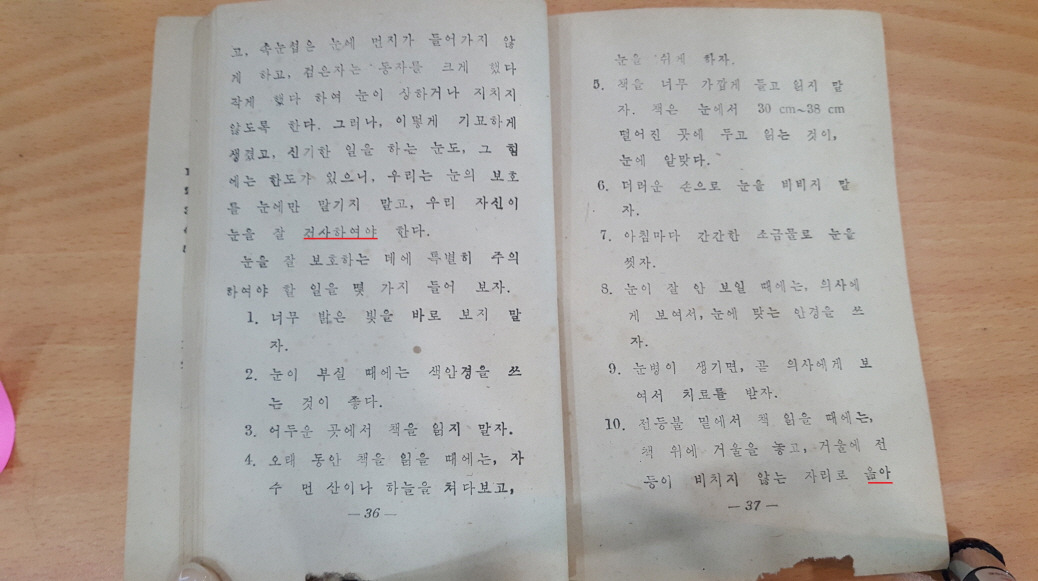 고, 속눈썹은 눈에 먼지가 들어가지 않
게 하고, 검은자는 동자를 크게 했다
작게 했다 하여 눈이 상하거나 지치지
않도록 한다. 그러나, 이렇게 기묘하게
생겼고, 신기한 일을 하는 눈도, 그 힘
에는 한도가 있으니, 우리는 눈의 보호
를 눈에만 맡기지 말고, 우리 자신이
눈을 잘 검사하여야 한다.
눈을 잘 보호하는 데에 특별히 주의
하여야 할 일을 몇 가지 들어 보자.
1. 너무 밝은 빛을 바로 보지 말
자.
2. 눈이 부실 때에는 색안경을 쓰
는 것이 좋다.
3. 어두운 곳에서 책을 읽지 말자.
4. 오래 동안 책을 읽을 때에는, 자
주 먼 산이나 하늘을 쳐다보고,
— 36 —
눈을 쉬게 하자.
5. 책을 너무 가깝게 들고 읽지 말
자. 책은 눈에서 30 cm~38 cm
떨어진 곳에 두고 읽는 것이,
눈에 알맞다.
6. 더러운 손으로 눈을 비비지 말
자.
7. 아침마다 간간한 소금물로 눈을
씻자.
8. 눈이 잘 안 보일 때에는, 의사에
게 보여서, 눈에 맞는 안경을 쓰
자.
9. 눈병이 생기면, 곧 의사에게 보
여서 치료를 받자.
10. 전등불 밑에서 책 읽을 때에는,
책 위에 거울을 놓고, 거울에 전
등이 비치지 않는 자리로 옮아
— 37 —